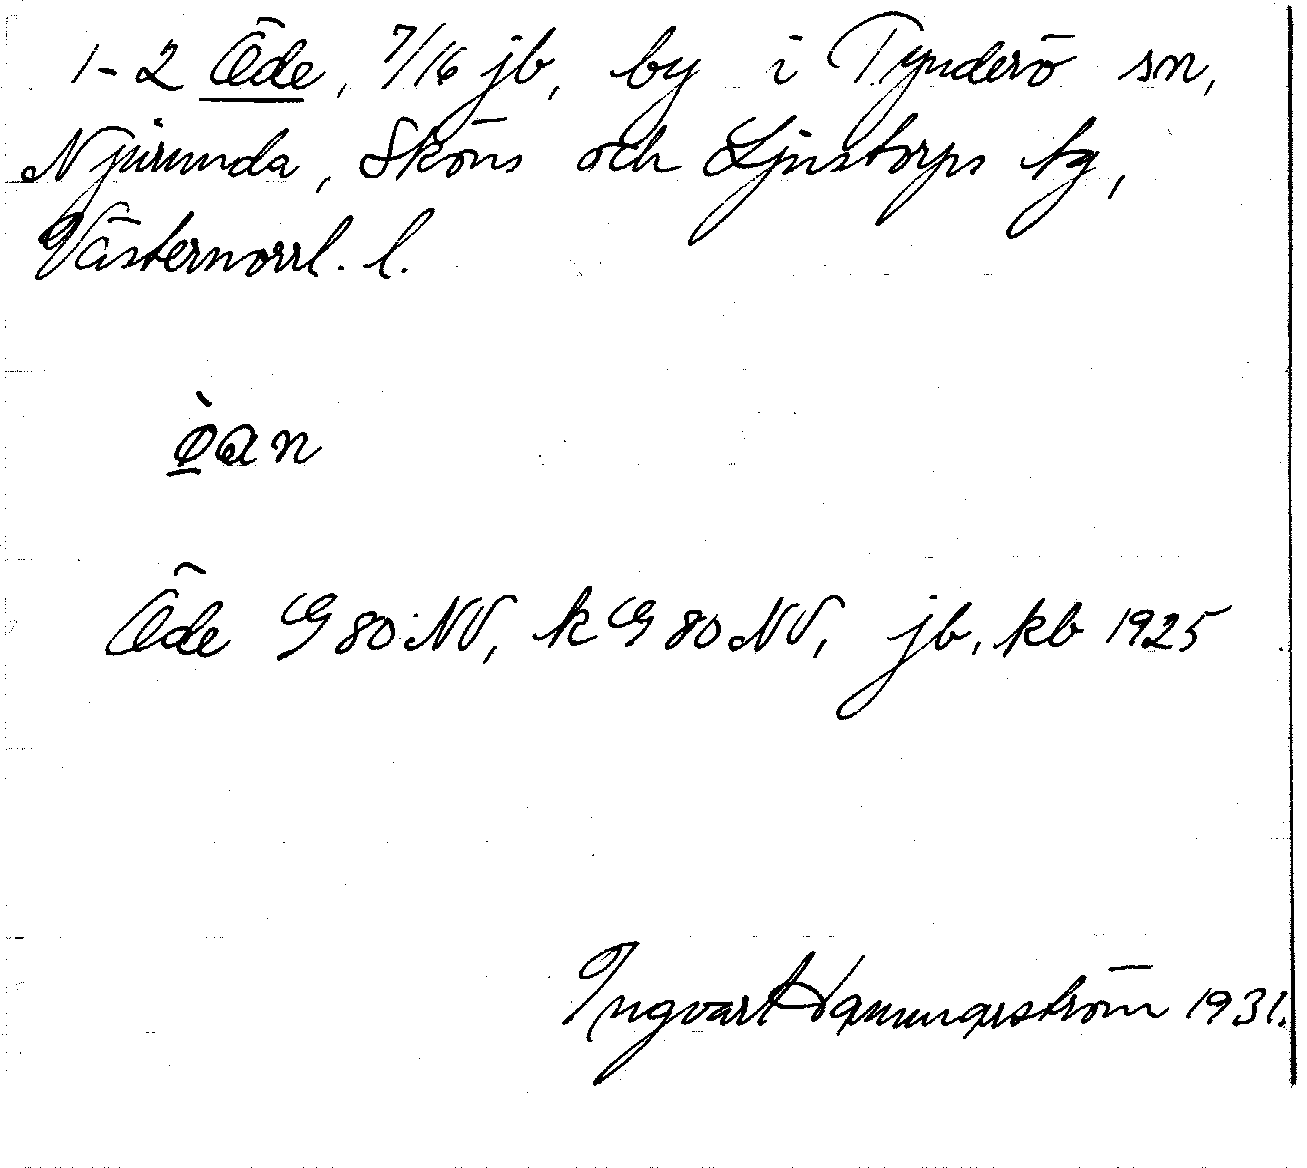 1-2 Öde, 7/16 jb, by i Tynderö sn,
Njurunda, Sköns och Ljustorps tg,
Västernorrl. l.
ø̱̀an
Öde G 80 NV, k G 80 NV, jb, kb 1925
Ingvar Hammarström 1931.